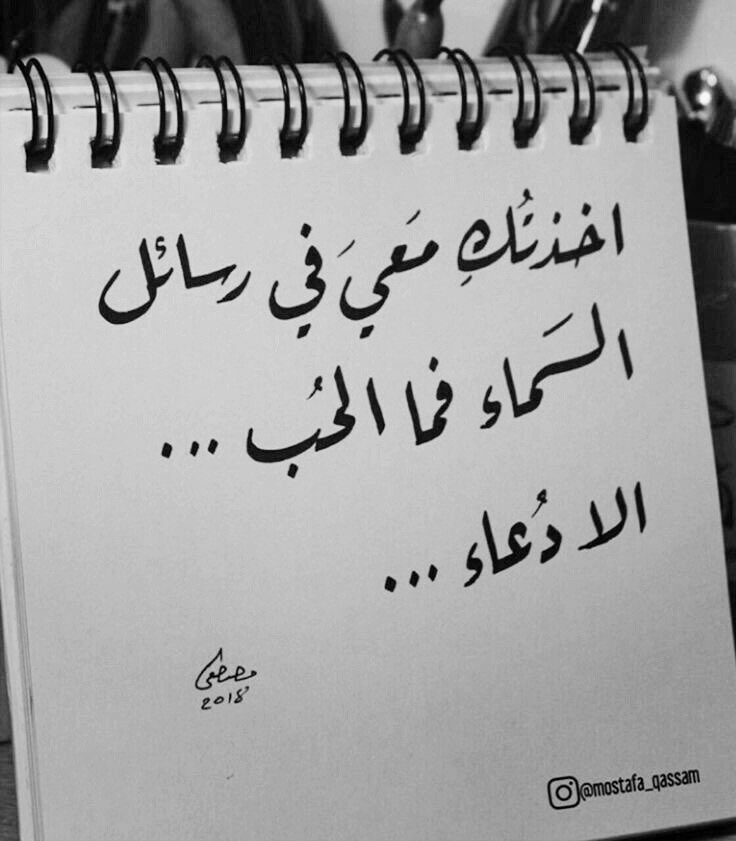 اخذتُكِ مَعيَ في رسائل
السَماء فما الحُب ...
الا دُعاء ...
مصطفى
2018
@mostafa_qassam